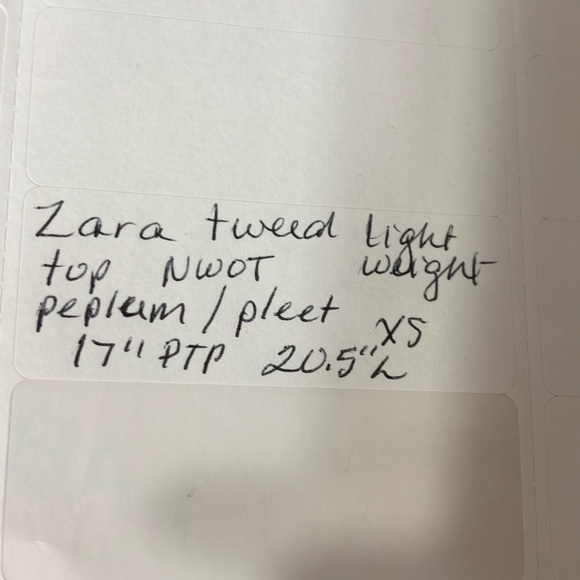 Zara tweed light
top NWOT weight
peplum / pleet
XS
17" PTP 20.5" L